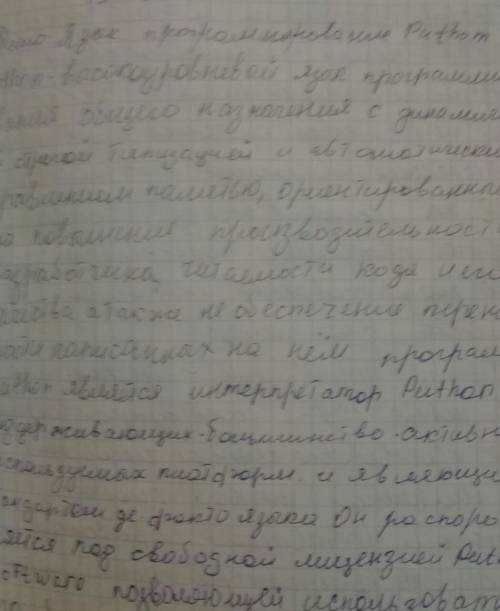 Язык программирование Puthon
thon-васокоуровневой язык программи
вания общего назначения с динамич
строгой типизацией и автоматическим
равлением памятью, ориентированный
на повышение производительност
азработчика, читаемости кода и его
чества а также не обеспечение перен
мости написанных на нём програм
uthon являйся интерпретатор Puthon
оддерживающих большинство активн
спользуемых платформ и являющи
тандартом де факто языка Он распоро
яйся под свободной лицензией Puth
oftware позволяющей использоват